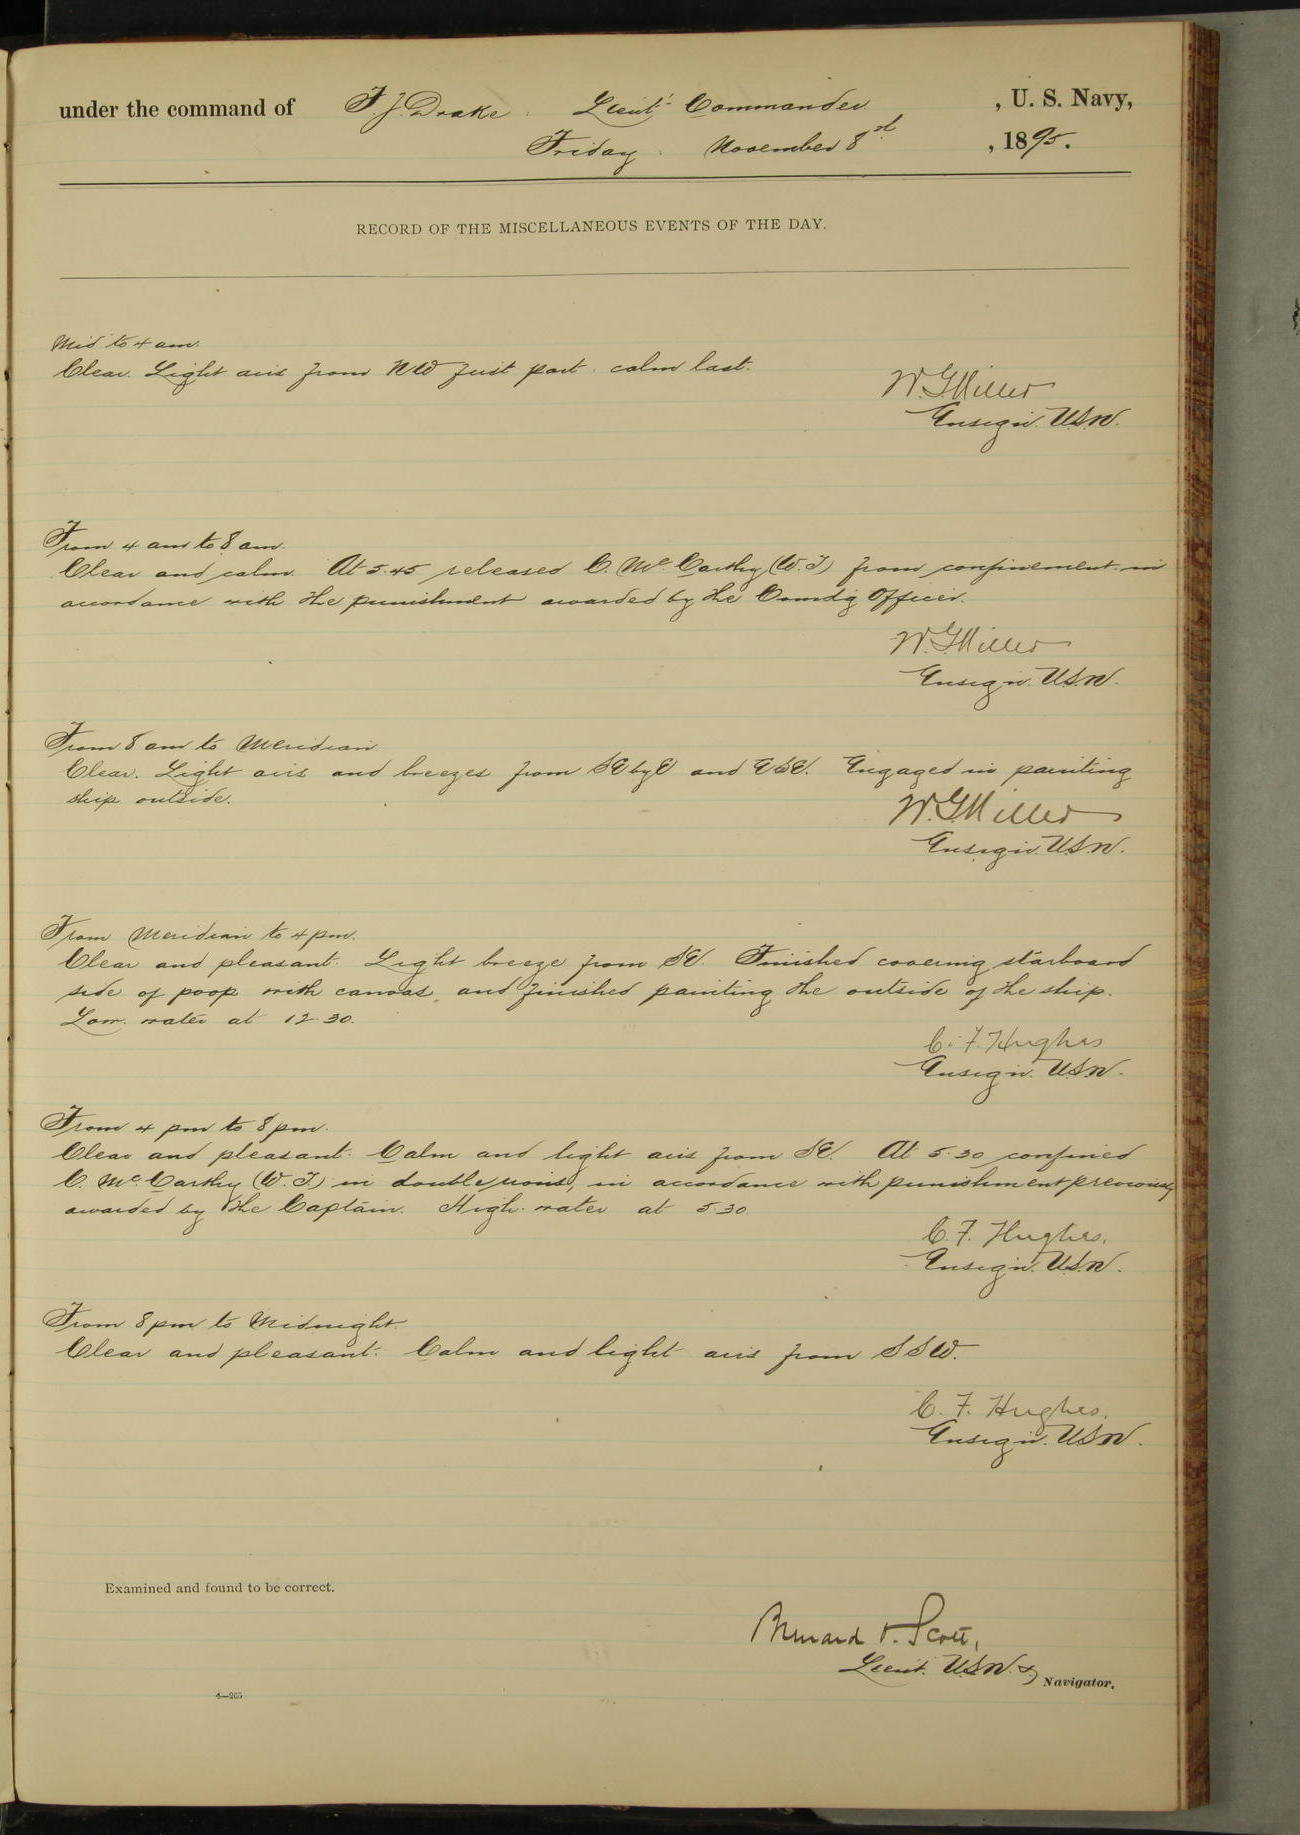 under the command of F. J. Drake. Lieut. Commander, U. S. Navy,
Friday. November 8th, 1895.
RECORD OF THE MISCELLANEOUS EVENTS OF THE DAY.
Mid to 4 am.
Clear. Light airs from NW first part. calm last.
W. G. Miller
Ensign. U.S.N.
From 4 am to 8 am.
Clear and calm. At 5.45 released C. McCarthy (W.T) from confinement in
accordance with the punishment awarded by the Comdg Officer.
W. G. Miller
Ensign. U.S.N.
From 8 am to Meridian
Clear. Light airs and breezes from SE by E and ESE. Engaged in painting
ship outside.
W. G. Miller
Ensign. U.S.N.
From Meridian to 4 pm.
Clear and pleasant. Light breeze from SE. Finished covering starboard
side of poop with canvas, and finished painting the outside of the ship.
Low. water at 12.30.
C. F. Hughes
Ensign. U.S.N.
From 4 pm to 8 pm.
Clear and pleasant. Calm and light airs from SE. At 5.30 confined
C. McCarthy (W.T) in double irons, in accordance with punishment previously
awarded by the Captain. High. water at 5.30.
C. F. Hughes.
Ensign. U.S.N.
From 8 pm to Midnight.
Clear and pleasant. Calm and light airs from SSW.
C. F. Hughes.
Ensign. U.S.N.
Examined and found to be correct.
Bernard O. Scott,
Lieut. U.S.N. & Navigator.
4—265